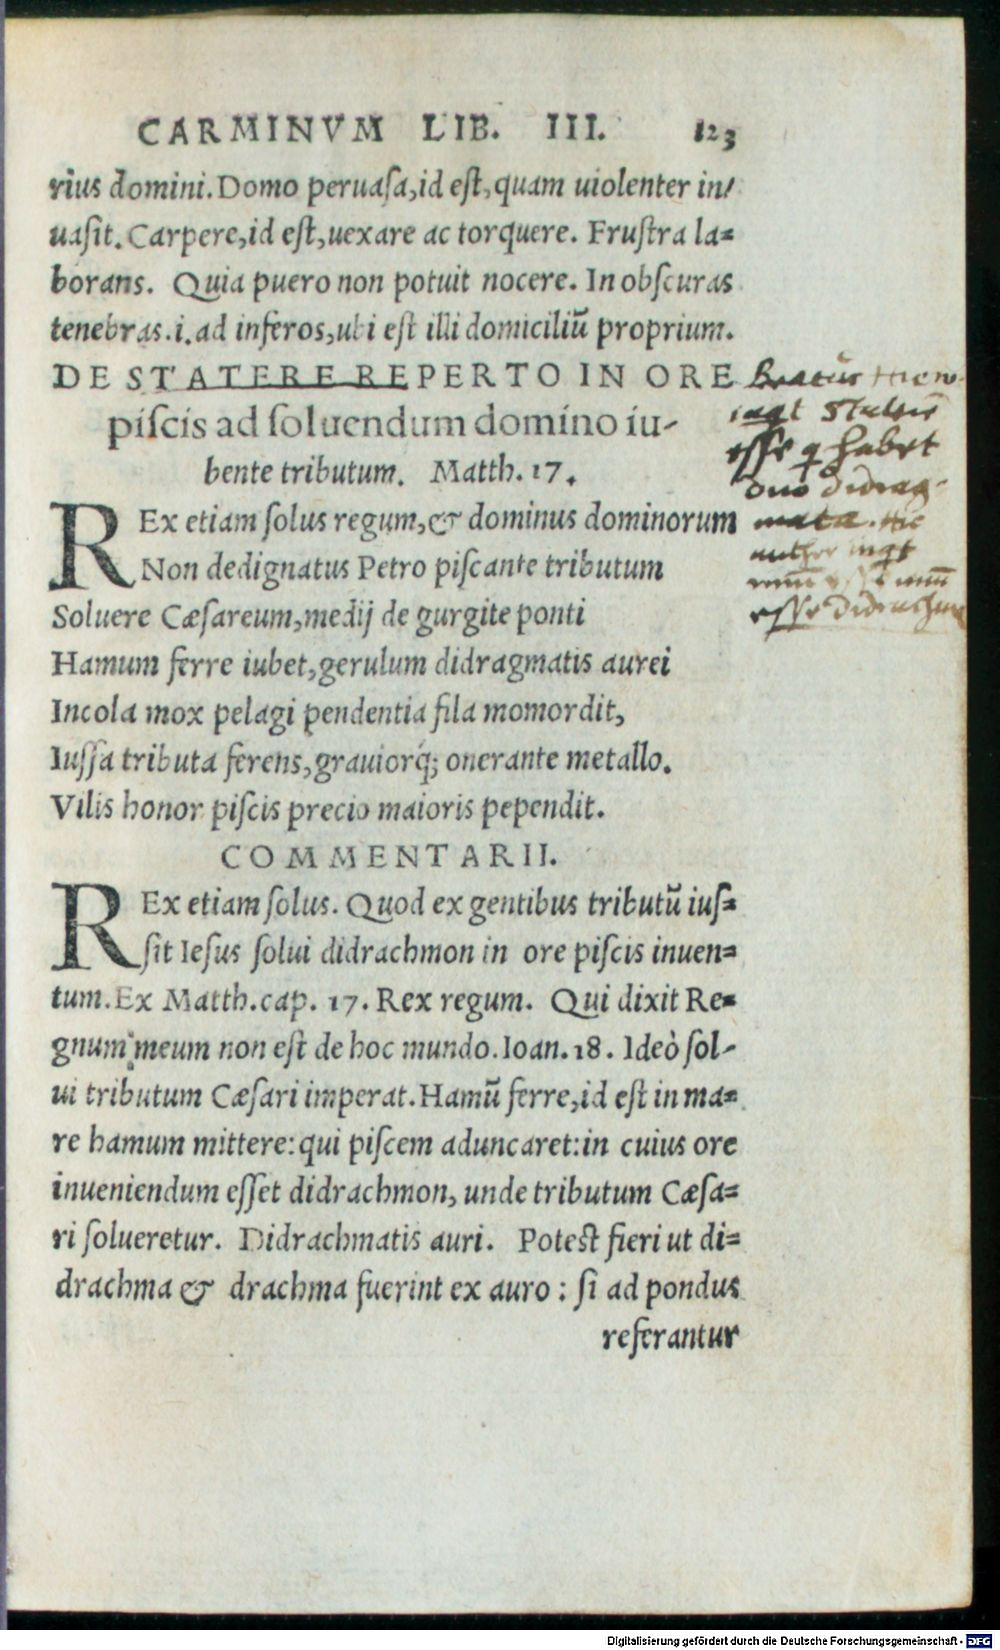 CARMINVM LIB. III. 123
rius domini. Domo peruasa, id est, quam uiolenter in/
uasit. Carpere, id est, uexare ac torquere. Frustra la=
borans. Quia puero non potuit nocere. In obscuras
tenebras .i. ad inferos, ubi est illi domiciliū proprium.
DE STATERE REPERTO IN ORE
piscis ad soluendum domino iu-
bente tributum. Matth. 17.
REx etiam solus regum, & dominus dominorum
Non dedignatus Petro piscante tributum
Soluere Cæsareum, medij de gurgite ponti
Hamum ferre iubet, gerulum didragmatis aurei
Incola mox pelagi pendentia fila momordit,
Iussa tributa ferens, grauiorq́; onerante metallo.
Vilis honor piscis precio maioris pependit.
COMMENTARII.
REx etiam solus. Quod ex gentibus tributū ius=
sit Iesus solui didrachmon in ore piscis inuen=
tum. Ex Matth. cap. 17. Rex regum. Qui dixit Re=
gnum meum non est de hoc mundo. Ioan. 18. Ideò sol-
ui tributum Cæsari imperat. Hamū ferre, id est in ma=
re hamum mittere: qui piscem aduncaret: in cuius ore
inueniendum esset didrachmon, unde tributum Cæsa=
ri solueretur. Didrachmatis auri. Potest fieri ut di=
drachma & drachma fuerint ex auro : si ad pondus
referantur
Beatus Hiero
inqt Staterē
esse q habet
duo didrag-
mata. Hic
author inqt
esse didrachma
Digitalisierung gefördert durch die Deutsche Forschungsgemeinschaft - DFG